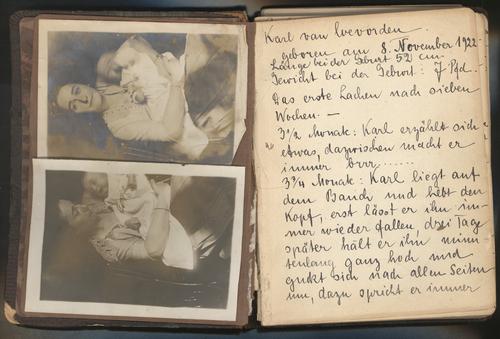 Karl van Coevorden
geboren am 8. November 1922.
Länge bei der Geburt 52 cm
Gewicht bei der Geburt: 7 Pfd.
Das erste Lachen nach sieben
Wochen. —
3 1/2 Monat: Karl erzählt sich
etwas, dazwischen macht er
immer brrr......
3 3/4 Monate: Karl liegt auf
dem Bauch und hebt den
Kopf, erst lässt er ihn im-
mer wieder fallen, drei Tag
später hält er ihn minu
tenlang ganz hoch und
guckt sich nach allen Seiten
um, dazu spricht er immer